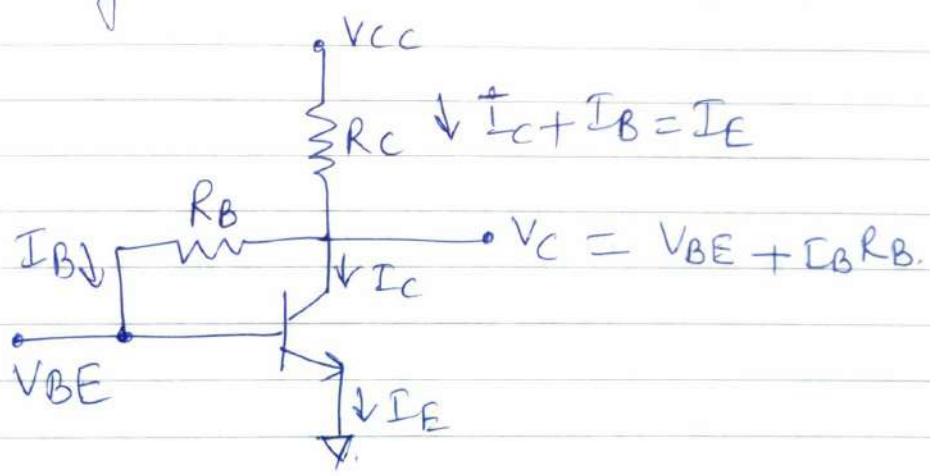 VCC
RC ↓ IC + IB = IE
RB
IB↓
VC = VBE + IB RB.
↓ IC
VBE
↓ IE